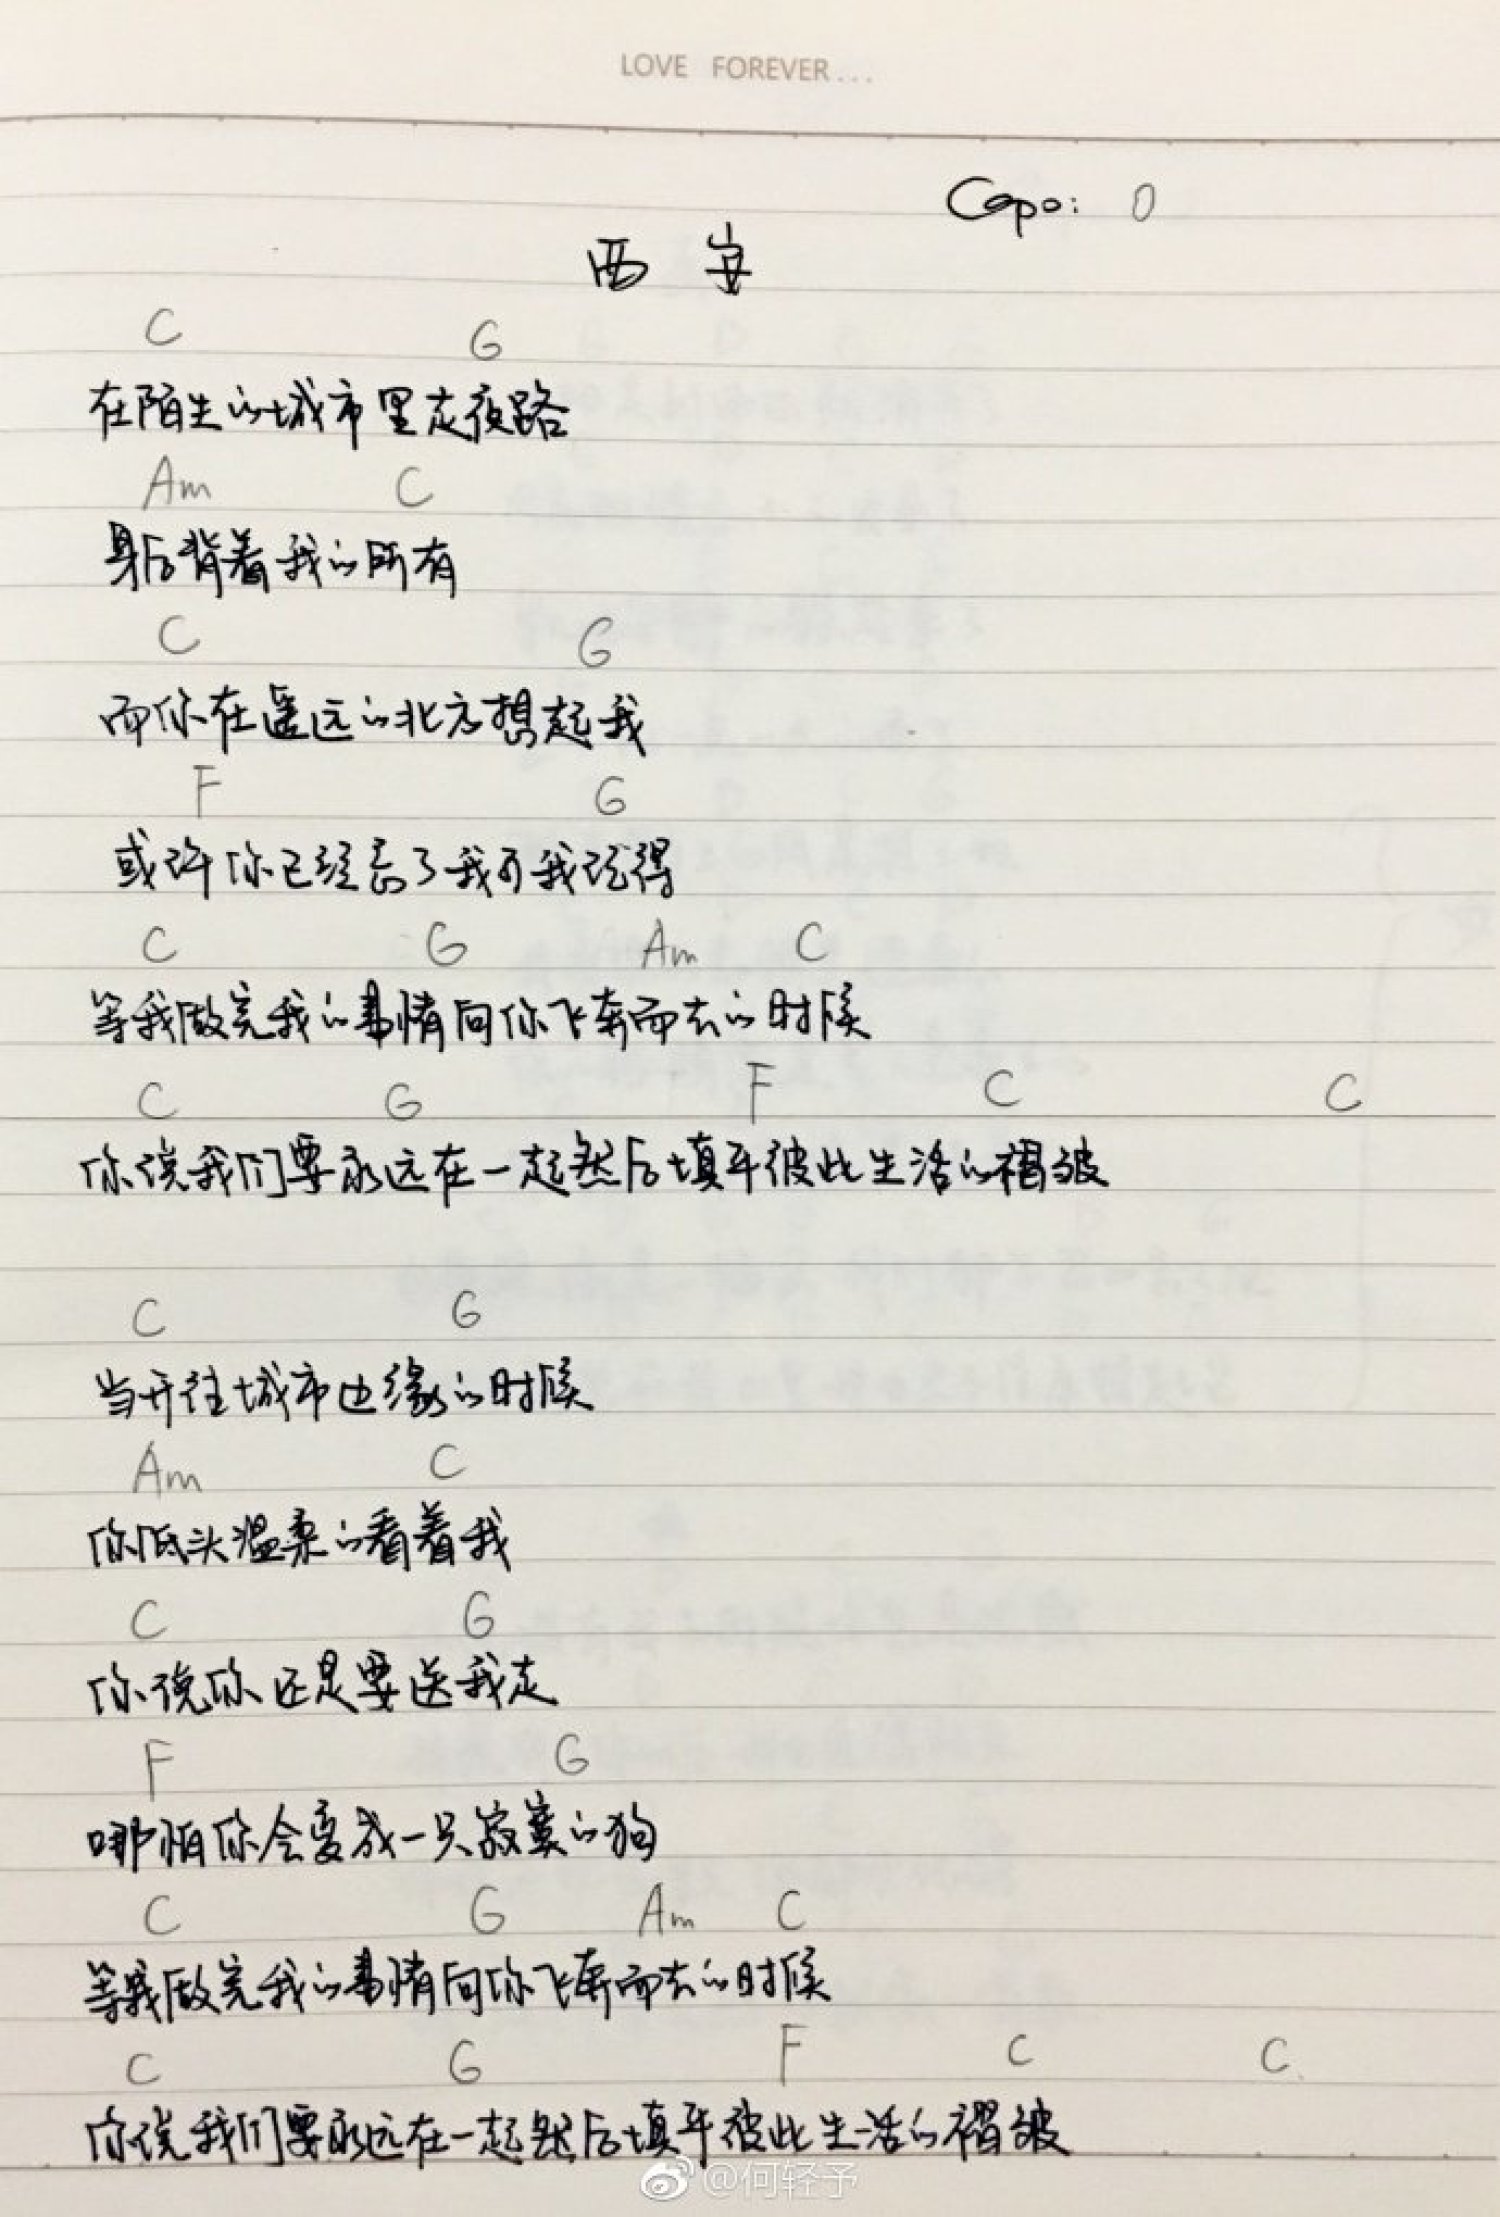 LOVE FOREVER...
Capo: 0
西安
C G
在陌生的城市里走夜路
Am C
身后背着我的所有
C G
而你在遥远的北方想起我
F G
或许你已经忘了我可我记得
C G Am C
等我做完我的事情向你飞奔而去的时候
C G F C C
你说我们要永远在一起然后填平彼此生活的褶皱
C G
当开往城市边缘的时候
Am C
你低头温柔的看着我
C G
你说你还是要送我走
F G
哪怕你会变成一只寂寞的狗
C G Am C
等我做完我的事情向你飞奔而去的时候
C G F C C
你说我们要永远在一起然后填平彼此生活的褶皱
@何轻予